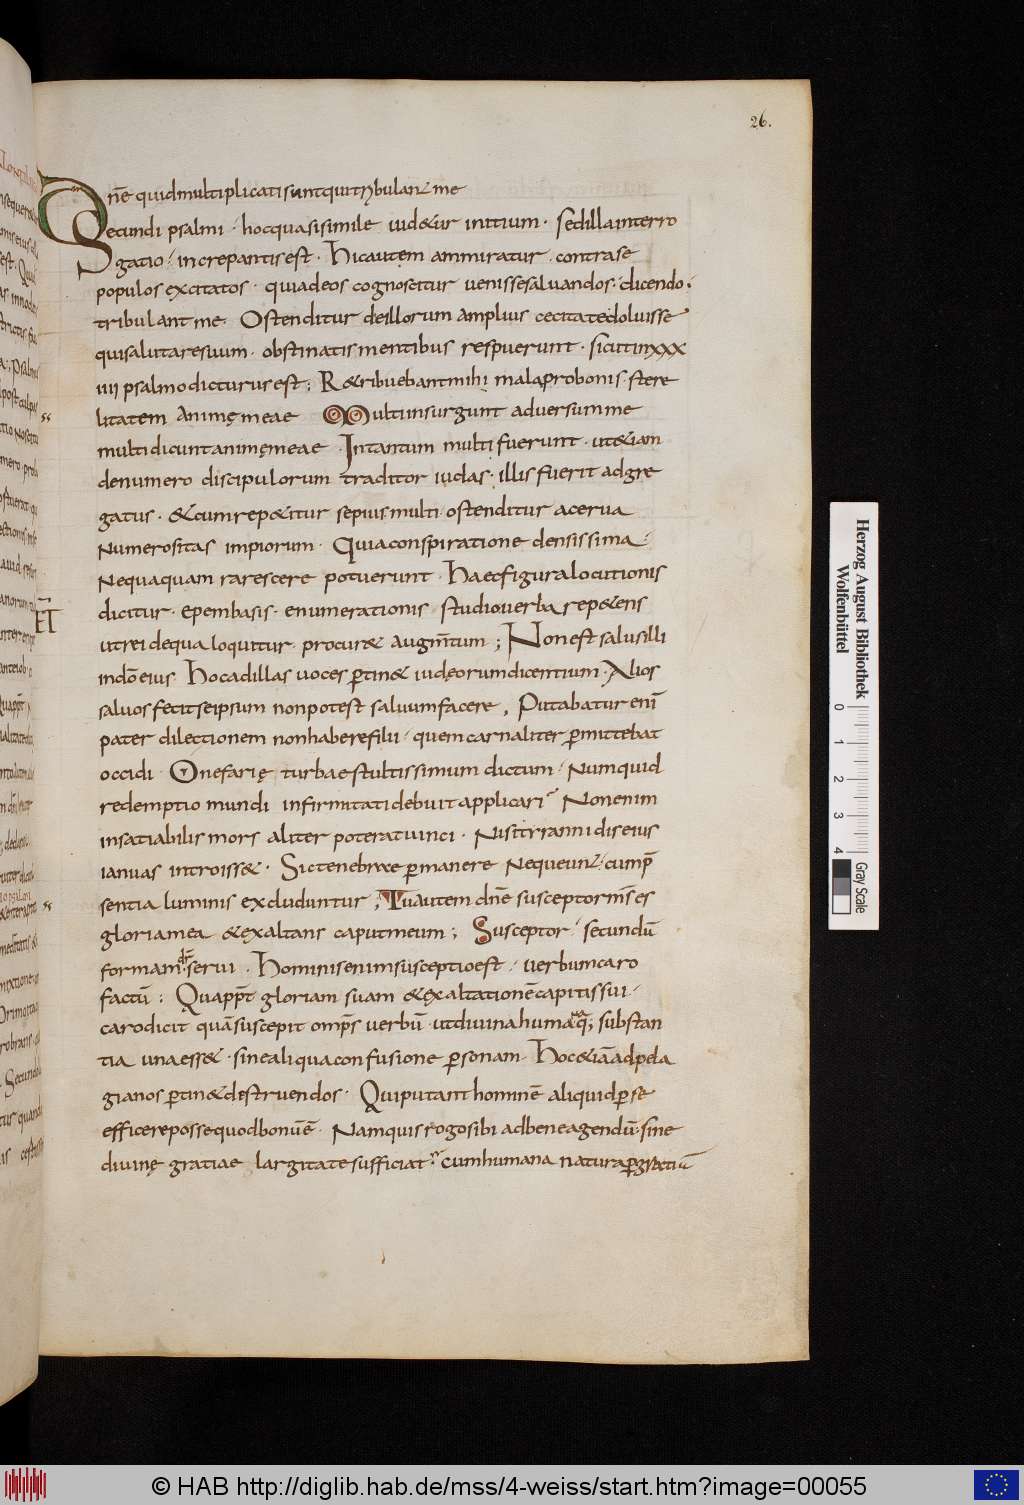 26.
Dnē quid multiplicati sunt qui tribulant me
Secundi psalmi · hoc quasi simile uid&ur initium · Sed illa interro
gatio · increpantis est · Hic autem ammiratur · contra se
populos excitatos · quia deos cognoscitur uenisse saluandos · dicendo ·
tribulant me · Ostenditur de illorum amplius cecitate doluisse
qui salutare suum · obstinatis mentibus respuerunt · sicut in xxx
iiii psalmo dicturus est ; R&ribuebant mihi mala pro bonis · stere
litatem animę meae Multi insurgunt aduersum me
multi dicunt animę meae · In tantum multi fuerunt · ut &iam
de numero discipulorum traditor iudas · illis fuerit adgre
gatus · & cum rep&itur sepius multi · ostenditur acerua
Numerositas impiorum · Quia conspiratione densissima ·
Nequaquam rarescere potuerunt · Haec figura locutionis
dicitur · epembasis · enumerationis · studio uerba rep&ens
ut rei de qua loquitur · procur& augm̄tum ; Non est salus illi
in dō eius · Hoc ad illas uoces ꝑtin& iudeorum dicentium · Alios
saluos fecit se ipsum non potest saluum facere , Putabatur enī
pater dilectionem non habere filii · quem carnaliter ꝑmittebat
occidi · O nefarię turbae stultissimum dictum · Numquid
redemptio mundi infirmitati debuit applicari · Non enim
insatiabilis mors aliter poterat uinci · Nisi tyranni dis eius
ianuas introiss& · Sic tenebrae ꝑmanere Nequeunt · cum p̄
sentia luminis excluduntur ; Tu autem dn̄e susceptor m̄s es
gloria mea & exaltans caput meum ; Susceptor · secundū
formam serui · Hominis enim susceptio est · uerbum caro
factū : Quapp̄t gloriam suam & exaltationē capitis sui ·
caro dicit quā suscepit omp̄s uerbū · ut diuina humanaq; substan
tia una ess& · sine aliqua confusione ꝑsonam · Hoc &iā ad pela
gianos ꝑtin& destruendos · Qui putant hominē aliquid ꝑ se
efficere posse quod bonū ē · Nam quis rogo sibi ad bene agendū · sine
diuinę gratiae largitate sufficiat · cum humana natura ꝑ gratiā
Herzog August Bibliothek
Wolfenbüttel
0 1 2 3 4
Gray Scale
© HAB http://diglib.hab.de/mss/4-weiss/start.htm?image=00055